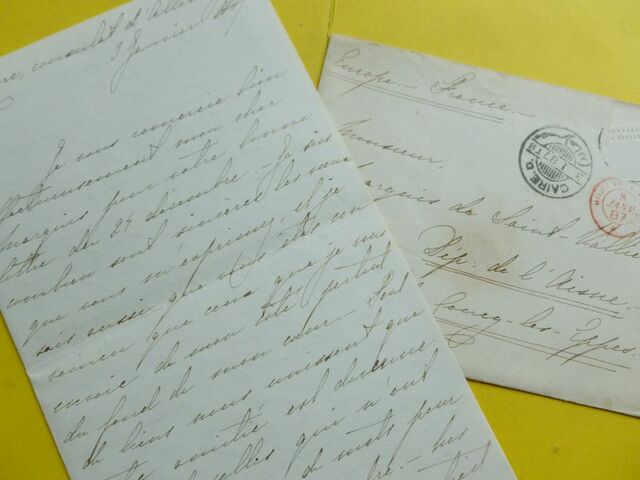 consulat d'Allem
3 Janvier
Je vous remercie bien
affectueusement mon cher
Marquis pour votre bonne
lettre du 24 décembre. Je sais
combien sont sincères les voeux
que vous m'exprimez, et je
sais aussi que vous êtes con
vaincu que ceux que je vous
envoie de mon côté partent
du fond de mon coeur.
de liens nous unissent que
amitié est devenue
qui n'ont
de mots pour
Europe - France
CAIRE
Monsieur,
Marquis de Saint-Vallier
Dép: de l'Aisne
Coucy-les-Eppes
JANV
87